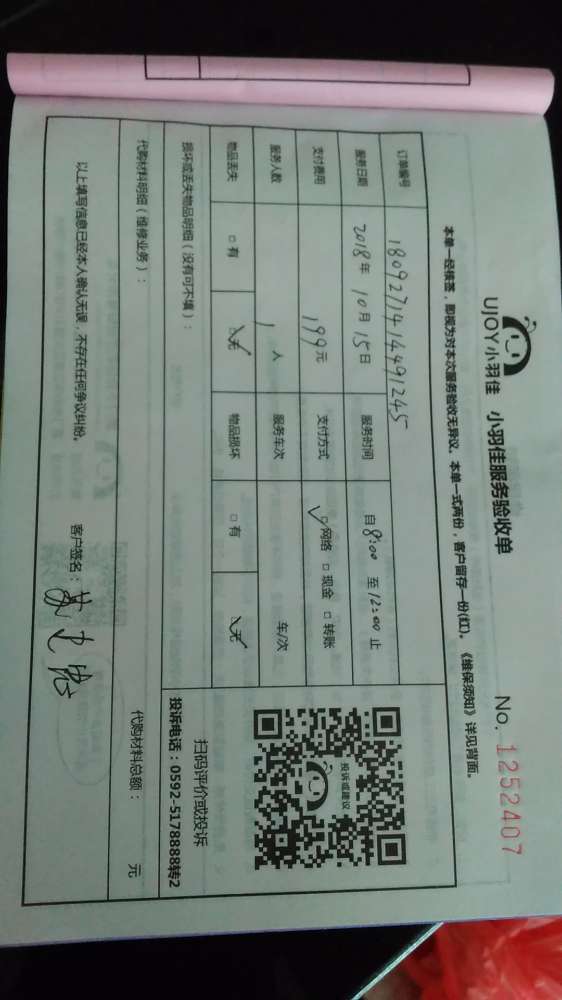 UJOY小羽佳 小羽佳服务验收单 No. 1252407
本单一经核签，即视为对本次服务验收无异议。本单一式两份，客户留存一份(红)。《维保须知》详见背面。
订单编号 1809271414491245
服务日期 2018年10月15日 服务时间 自8:00至12:00止
支付费用 199元 支付方式 ☑网络 □现金 □转账
服务人数 1人 服务车次 车/次
物品丢失 □有 ☑无 物品损坏 □有 ☑无
投诉或建议
扫码评价或投诉
投诉电话：0592-5178888转2
损坏或丢失物品明细（没有可不填）：
代购材料明细（维修业务）： 代购材料总额： 元
以上填写信息已经本人确认无误，不存在任何争议纠纷。 客户签名：